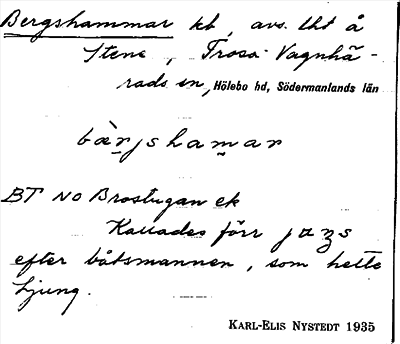 Bergshammar kt, avs. lht å
Stene, Trosa-Vagnhä-
rads sn, Hölebo hd, Södermanlands län
bærjshamar
BT NO Brostugan ek
Kallades förr juŋs
efter båtsmannen, som hette
Ljung.
KARL-ELIS NYSTEDT 1935